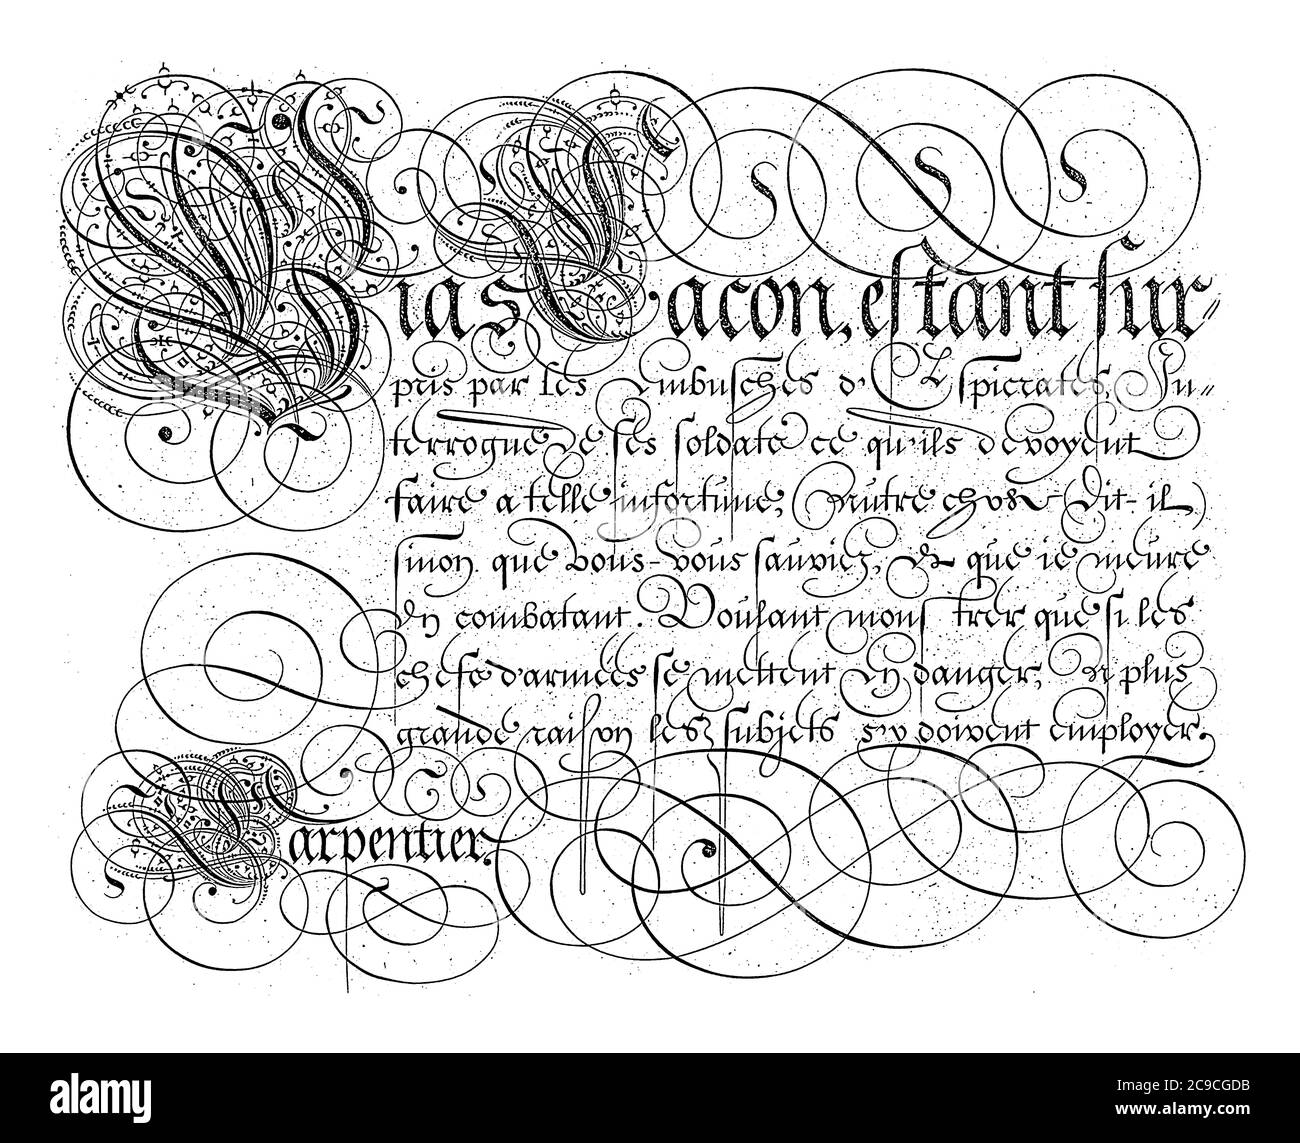 Bias Lacon, estant sur-
pris par les Embusches d'Espicrates, In-
terrogue de ses soldats ce qu'ils devoyent
faire a telle infortune, Autre chose (dit-il)
sinon que vous-vous sauviez, & que ie meure
En combatant. Voulant monstrer que si les
chefs d'armées se mettent En danger, De plus
grande raison les subjets s'y doivent employer.
Carpentier.
alamy
Image ID: 2C9CGDB
www.alamy.com